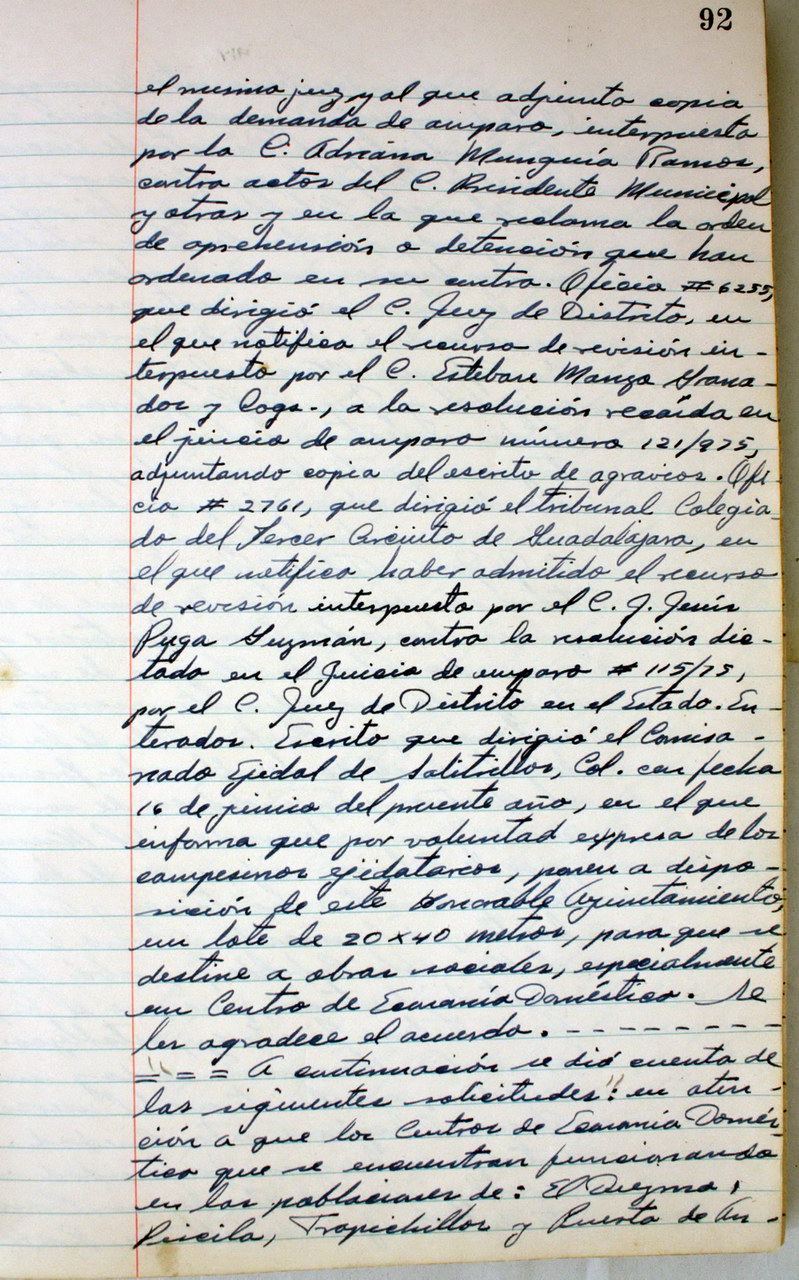 92
el mismo juez y al que adjunta copia
de la demanda de amparo, interpuesta
por la C. Adriana Munguía Ramos,
contra actos del C. Presidente Municipal
y otras y en la que reclama la orden
de aprehensión o detención que han
ordenado en su contra. Oficio # 6255,
que dirigió el C. Juez de Distrito, en
el que notifica el recurso de revisión in-
terpuesto por el C. Esteban Manzo Grana-
dos y Cogs., a la resolución recaída en
el juicio de amparo número 121/975,
adjuntando copia del escrito de agravios. Ofi-
cio # 2761, que dirigió el tribunal Colegia-
do del Tercer Circuito de Guadalajara, en
el que notifica haber admitido el recurso
de revisión interpuesto por el C. J. Jesús
Puga Guzmán, contra la resolución dic-
tada en el Juicio de amparo # 115/75,
por el C. Juez de Distrito en el Estado. En-
terados. Escrito que dirigió el Comisa-
riado Ejidal de Salitrillos, Col. con fecha
16 de junio del presente año, en el que
informa que por voluntad expresa de los
campesinos ejidatarios, ponen a dispo-
sición de este Honorable Ayuntamiento,
un lote de 20x40 metros, para que se
destine a obras sociales, especialmente
un Centro de Economía Doméstica. Se
les agradece el acuerdo. - - - - - - - -
= = = = A continuación se dió cuenta de
las siguientes solicitudes: en aten-
ción a que los Centros de Economía Domés-
tica que se encuentran funcionando
en las poblaciones de: El Diezmo,
Piscila, Trapichillos y Puerta de An-